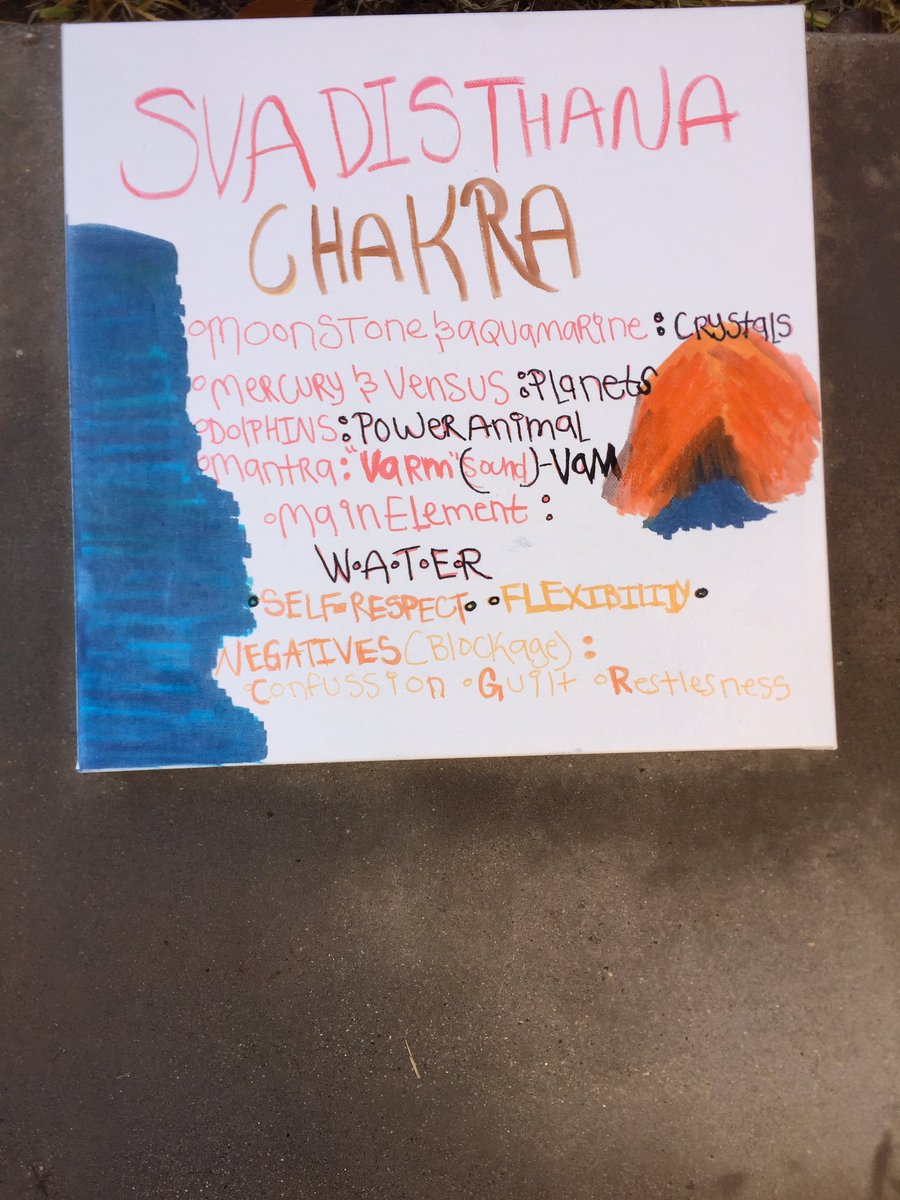 SVADISTHANA
CHAKRA
MOONSTONE & AQUAMARINE : CRYSTALS
MERCURY & VENSUS : PLANETS
DOLPHINS : POWER ANIMAL
MANTRA : "VARM" (SOUND) - VAM
MAIN ELEMENT :
W.A.T.E.R
• SELF-RESPECT • • FLEXIBILITY •
NEGATIVES (BLOCKAGE) :
CONFUSSION • GUILT • RESTLESNESS